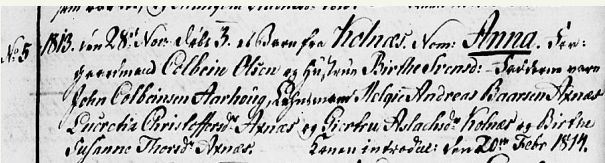 No 5 1813. den 28de Nov. döbt 3. et Barn fra Kolnæs. Nom: Anna. For-
Colbein Olsen og Hustrue Birthe Svensd: Fadderne vare
John Colbeinsen Aarhoug, Lehnsmand Andreas Baarsen Axnæs
Lucretia Christoffersdr Axnæs og Giertru Aslachsdr Kolnæs og Birthe
Susanne Thorsdr Axnæs. Konen introdu: den 20de Febr 1814.